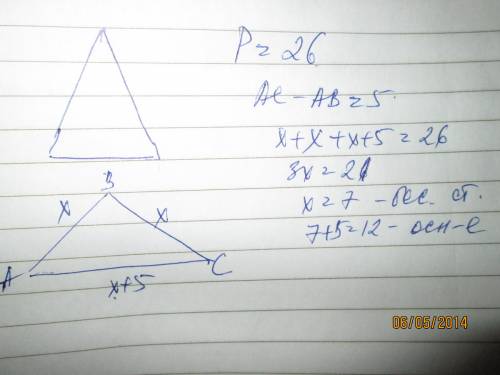 P = 26
AC - AB = 5.
x + x + x + 5 = 26
3x = 21
x = 7 - бос. ст.
7 + 5 = 12 - осн-е
B
x
x
A
C
x+5
06/05/2014